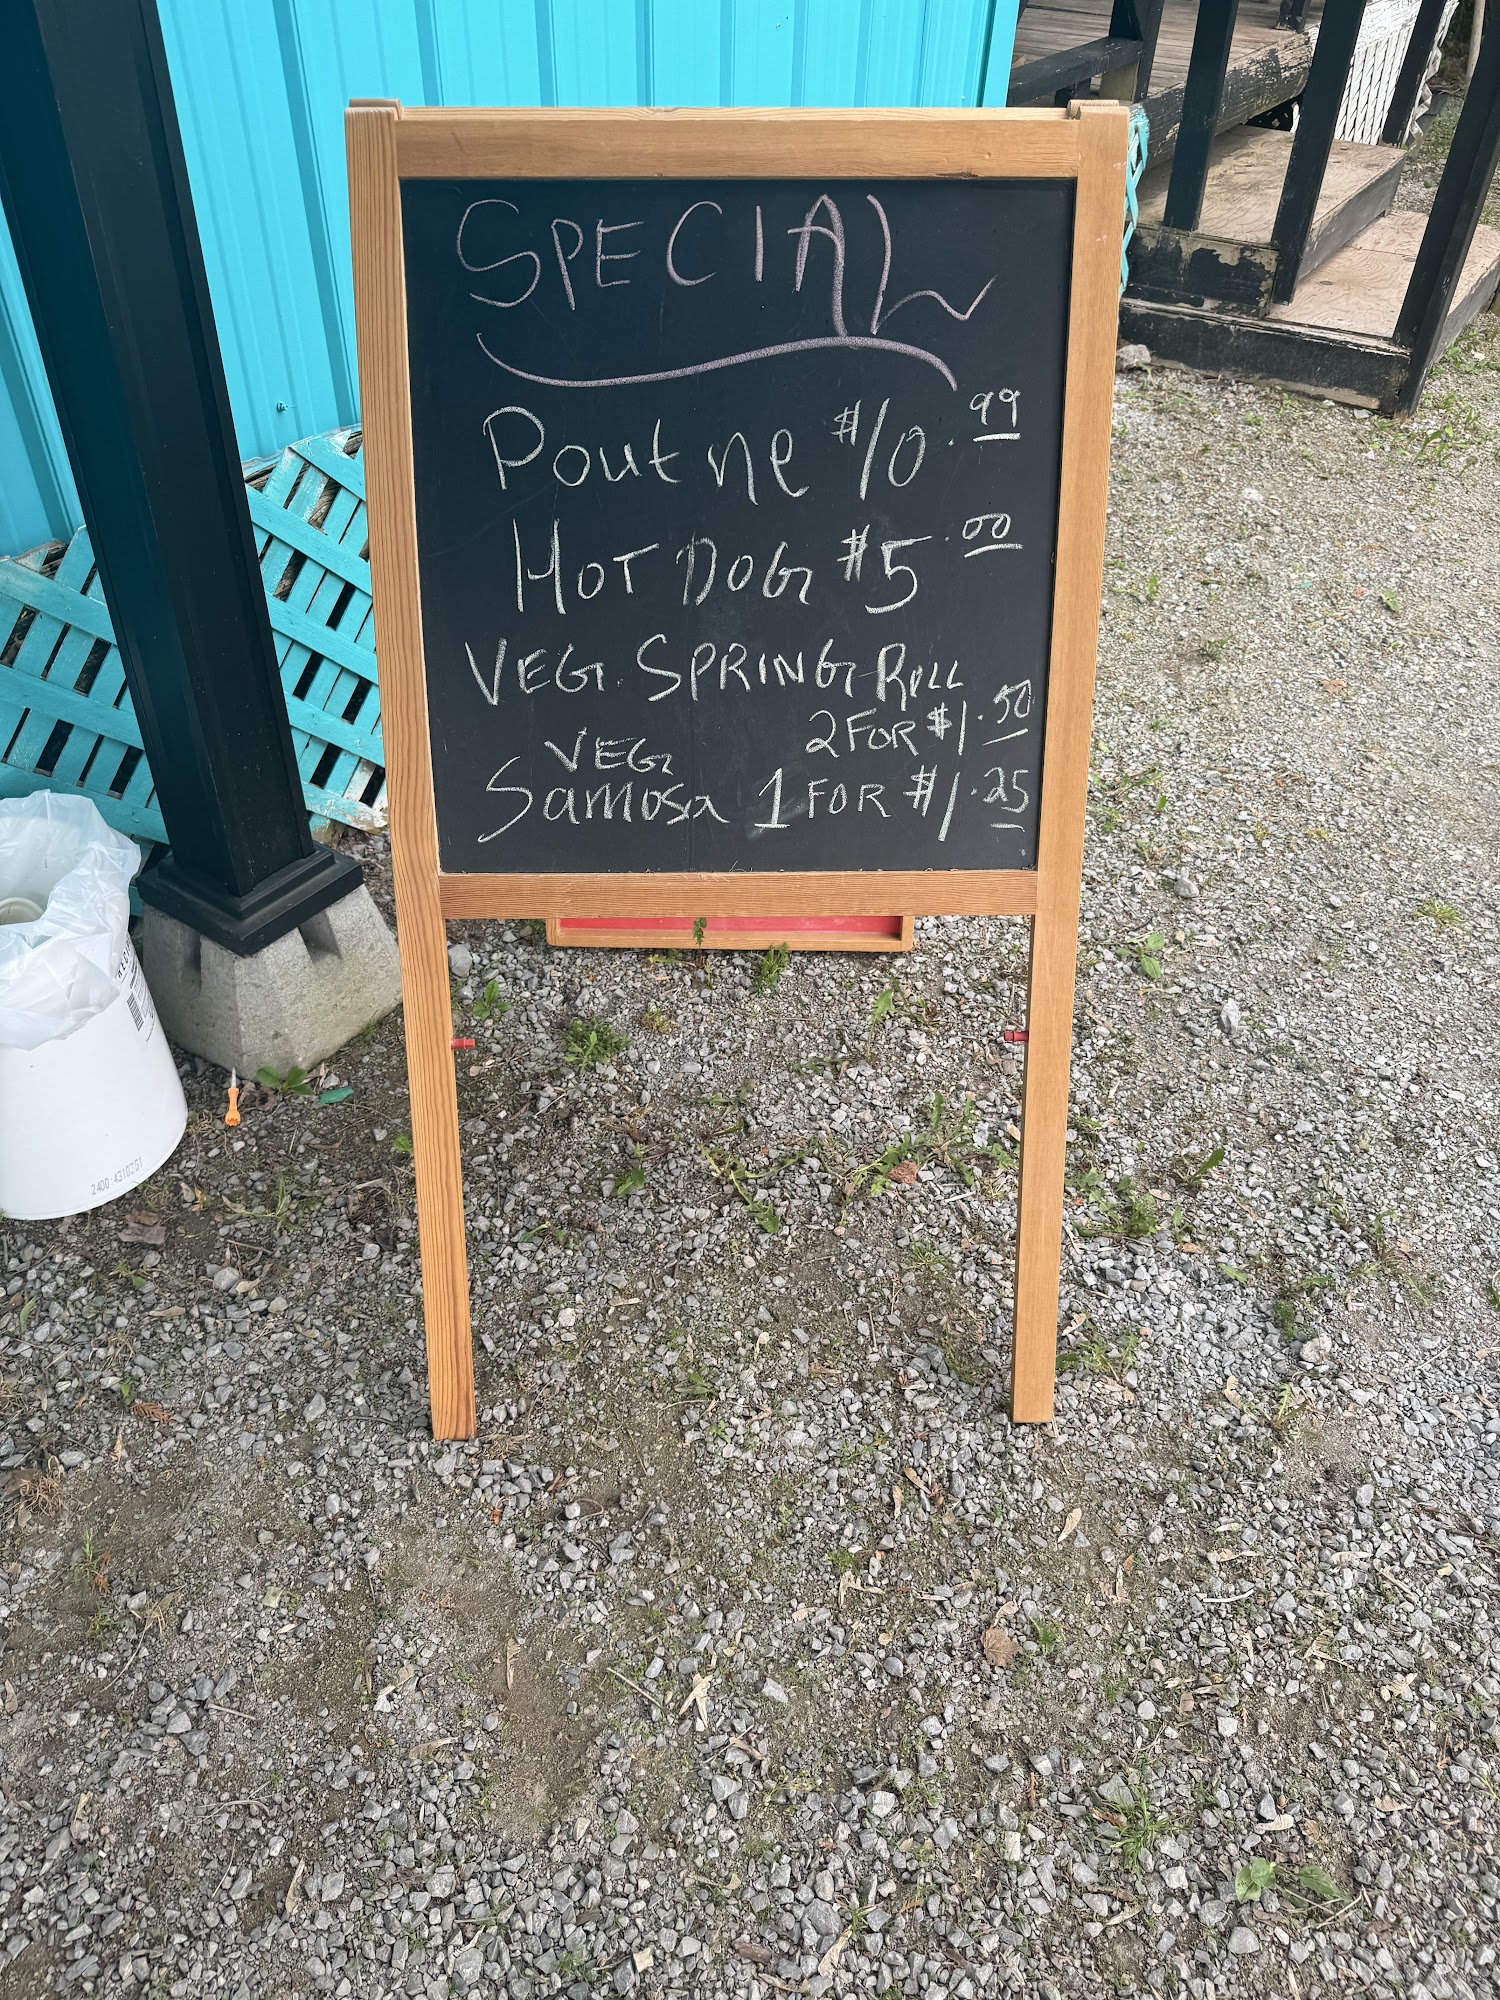 SPECIAL
Poutine $10.99
HOT DOG $5.00
VEG. SPRING ROLL
2 FOR $1.50
VEG
Samosa 1 FOR $1.25
2400-4310351